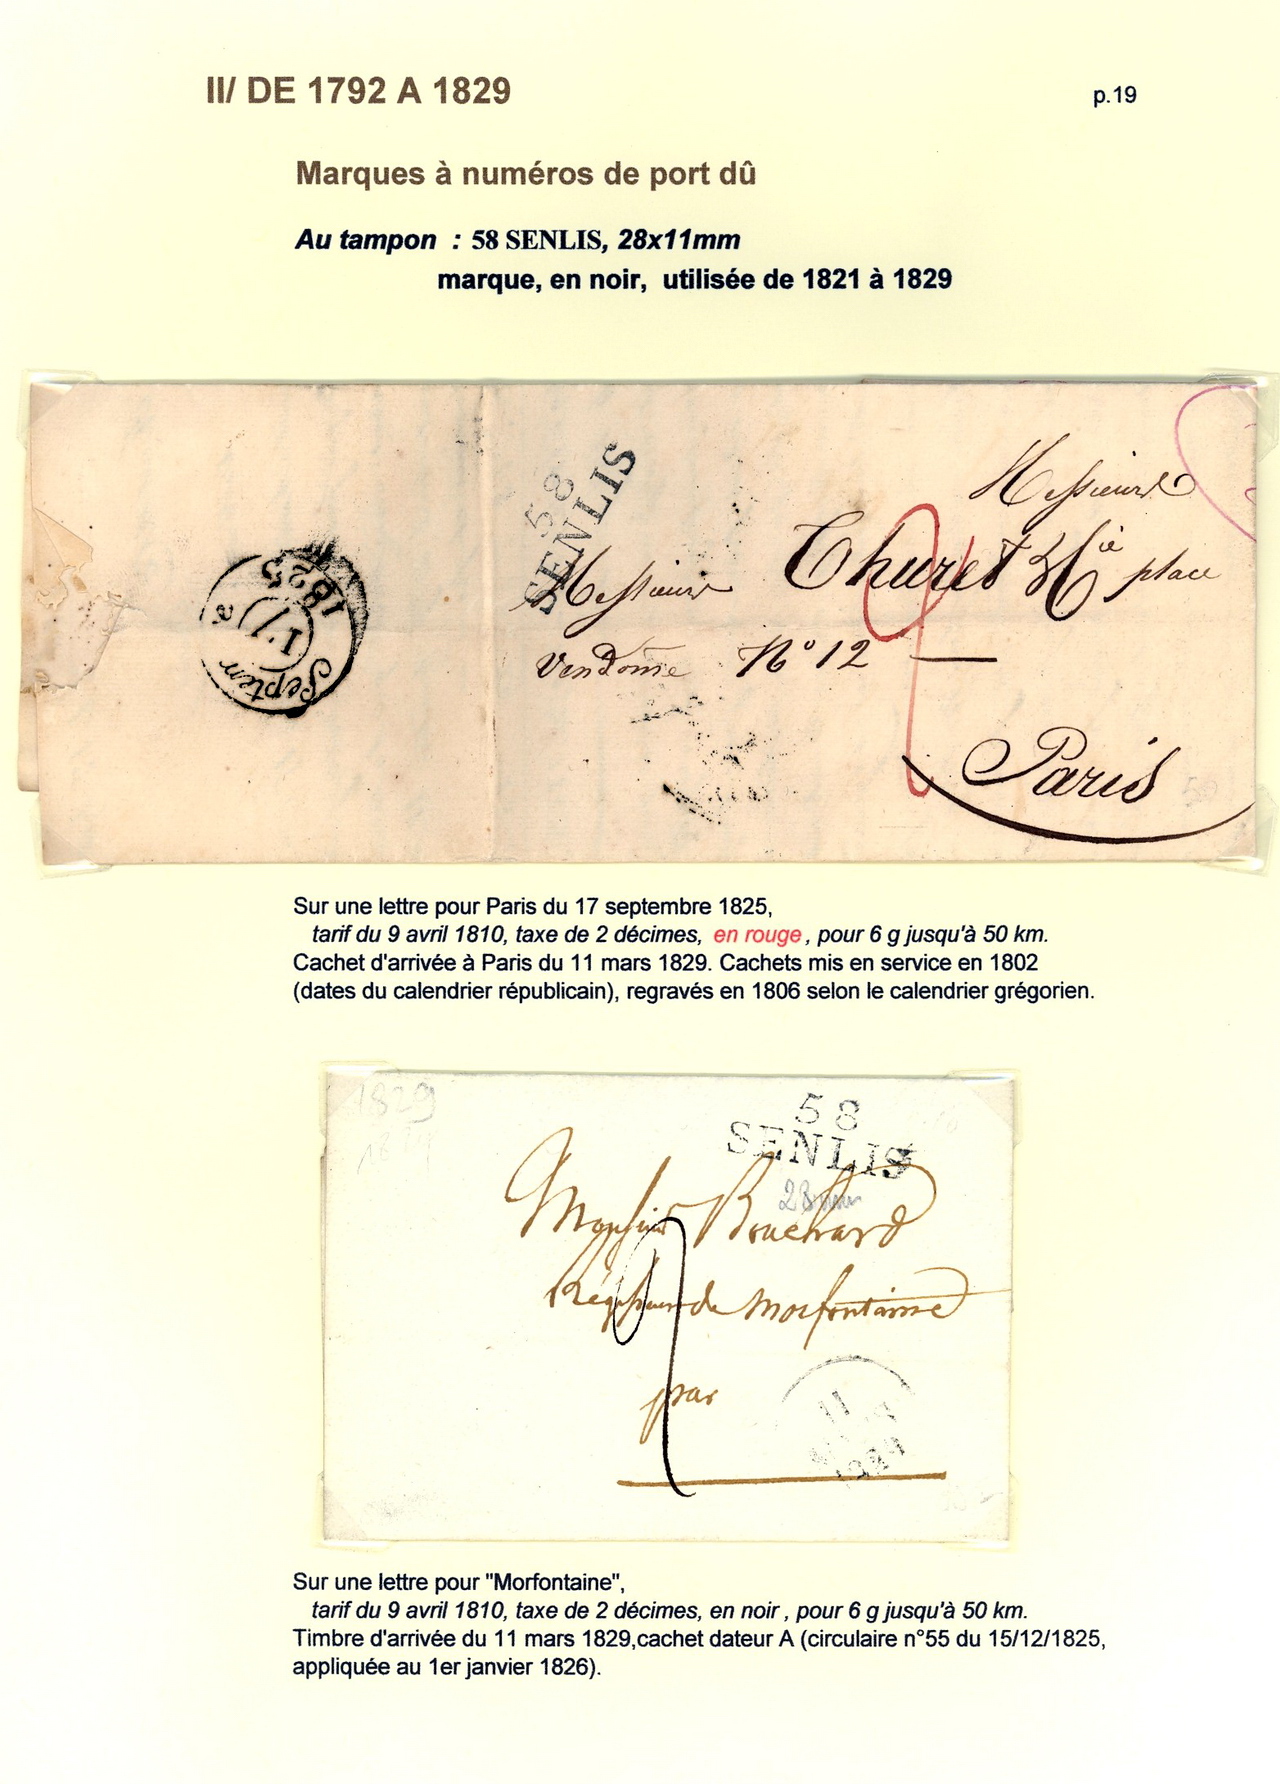 II/ DE 1792 A 1829
p.19
Marques à numéros de port dû
Au tampon : 58 SENLIS, 28x11mm
marque, en noir, utilisée de 1821 à 1829
58
SENLIS
Messieurs
Messieurs Thuret & Cie place
Vendome N° 12
Paris
Septem
17
1825
2
Sur une lettre pour Paris du 17 septembre 1825,
tarif du 9 avril 1810, taxe de 2 décimes, en rouge, pour 6 g jusqu'à 50 km.
Cachet d'arrivée à Paris du 11 mars 1829. Cachets mis en service en 1802
(dates du calendrier républicain), regravés en 1806 selon le calendrier grégorien.
1829
58
SENLIS
28mm
Monsieur Bouchard
Régisseur de Morfontaine
par
11
2
Sur une lettre pour "Morfontaine",
tarif du 9 avril 1810, taxe de 2 décimes, en noir, pour 6 g jusqu'à 50 km.
Timbre d'arrivée du 11 mars 1829,cachet dateur A (circulaire n°55 du 15/12/1825,
appliquée au 1er janvier 1826).